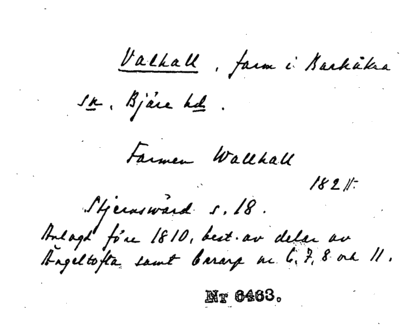 Valhall, farm i Barkåkra
sn, Bjäre hd.
Farmen Wallhall
182
Stjernswärd s. 18.
Anlagt före 1810, best. av delar av
Ängeltofta samt Errarp nr 6, 7, 8 och 11.
Nr 6463.